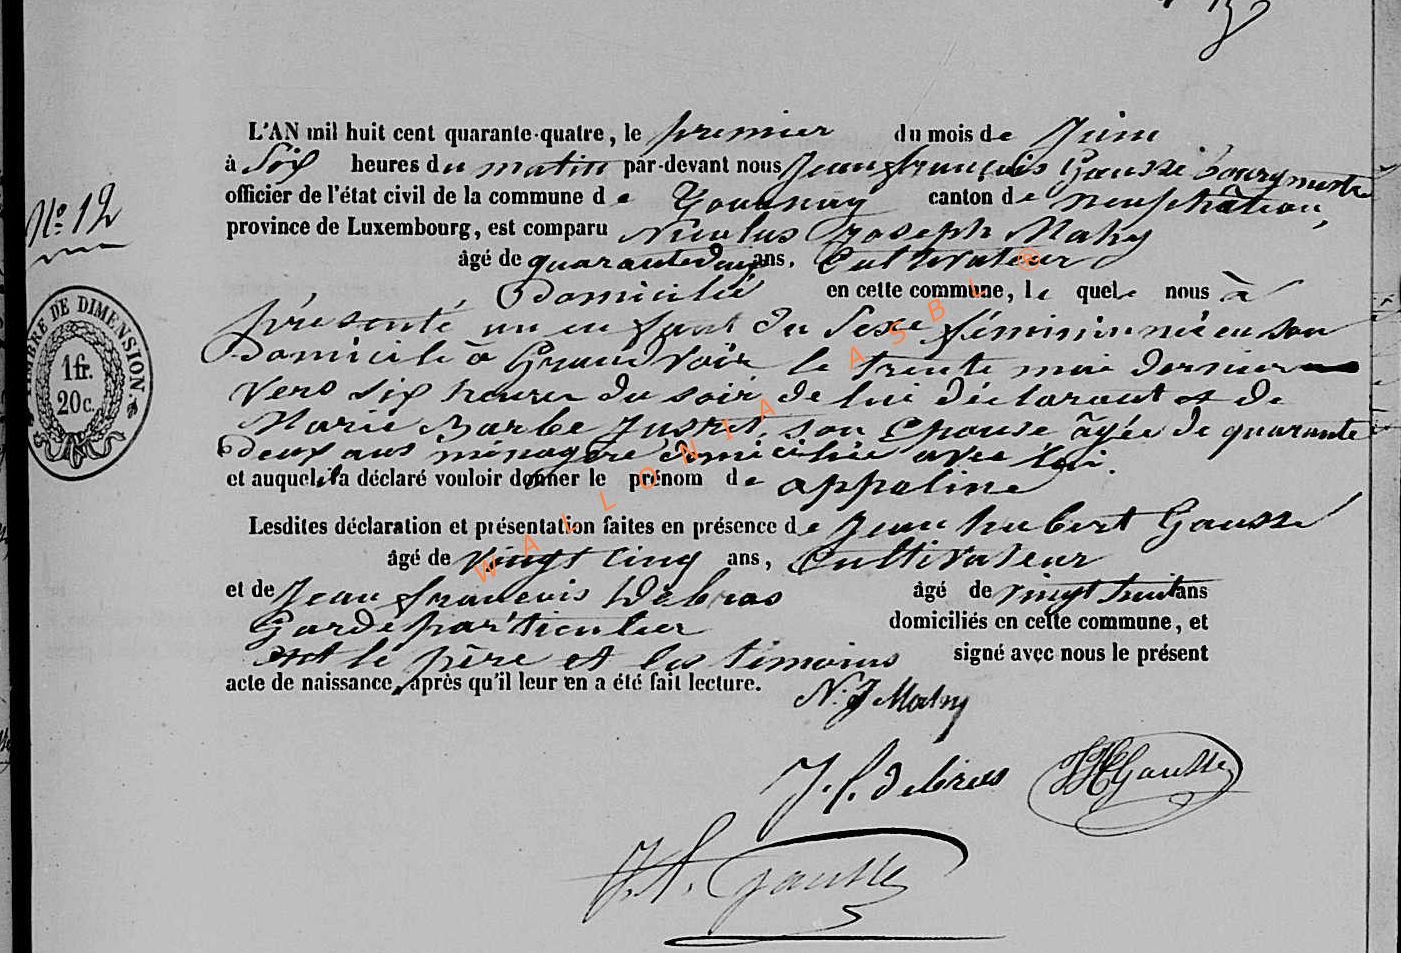 L'AN mil huit cent quarante-quatre, le premier du mois de Juin
à Six heures du matin par-devant nous Jean françois Gausse bourgmestre
officier de l'état civil de la commune de Tournay canton de neufchâteau,
N.o 12
province de Luxembourg, est comparu Nicolas Joseph Mahy
âgé de quarante deux ans, Cultivateur
Domicilié en cette commune, le quel nous à
présenté un enfant du Sexe féminin né en son
TIMBRE DE DIMENSION.
1 fr.
20 c.
Domicile à Grand Voir le trente mai dernier
vers six heures du soir, de lui déclarant et de
Marie Barbe Jusret, son Epouse âgée de quarante
deux ans ménagère domiciliée avec lui.
et auquel il a déclaré vouloir donner le prénom de appoline
Lesdites déclaration et présentation faites en présence de Jean hubert Gausse
âgé de vingt cinq ans, Cultivateur
et de Jean francois Debras âgé de vingt huit ans
Garde particulier domiciliés en cette commune, et
ont le père et les témoins signé avec nous le présent
acte de naissance, après qu'il leur en a été fait lecture.
N. J Mahy
J. f. debras
JH Gausse
J. f. Gausse
WALLONIA ASBL ®